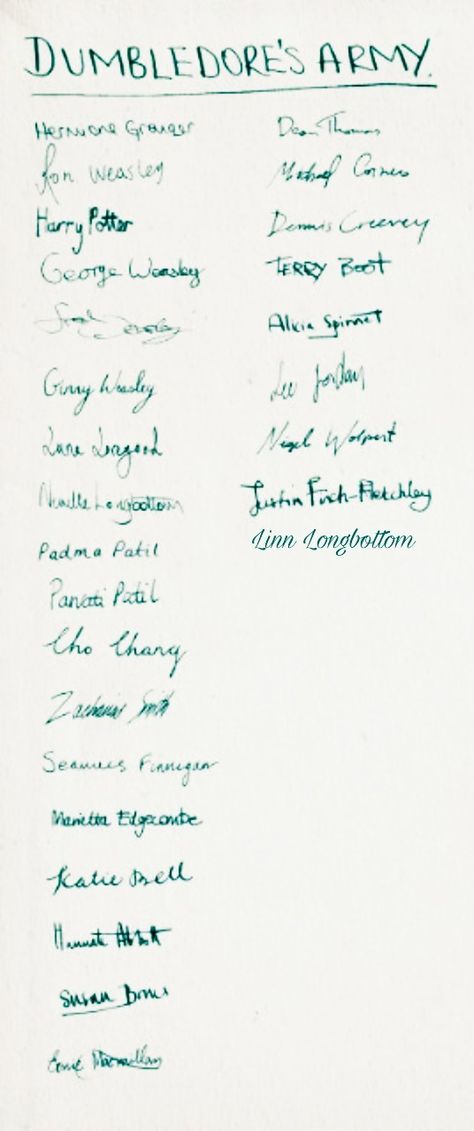 DUMBLEDORE'S ARMY.
Hermione Granger
Ron Weasley
Harry Potter
George Weasley
Fred Weasley
Ginny Weasley
Luna Lovegood
Neville Longbottom
Padma Patil
Parvati Patil
Cho Chang
Zacharias Smith
Seamus Finnigan
Marietta Edgecombe
Katie Bell
Hannah Abbott
Susan Bones
Ernie Macmillan
Dean Thomas
Michael Corner
Dennis Creevey
TERRY BOOT
Alicia Spinnet
Lee Jordan
Nigel Wolpert
Justin Finch-Fletchley
Linn Longbottom